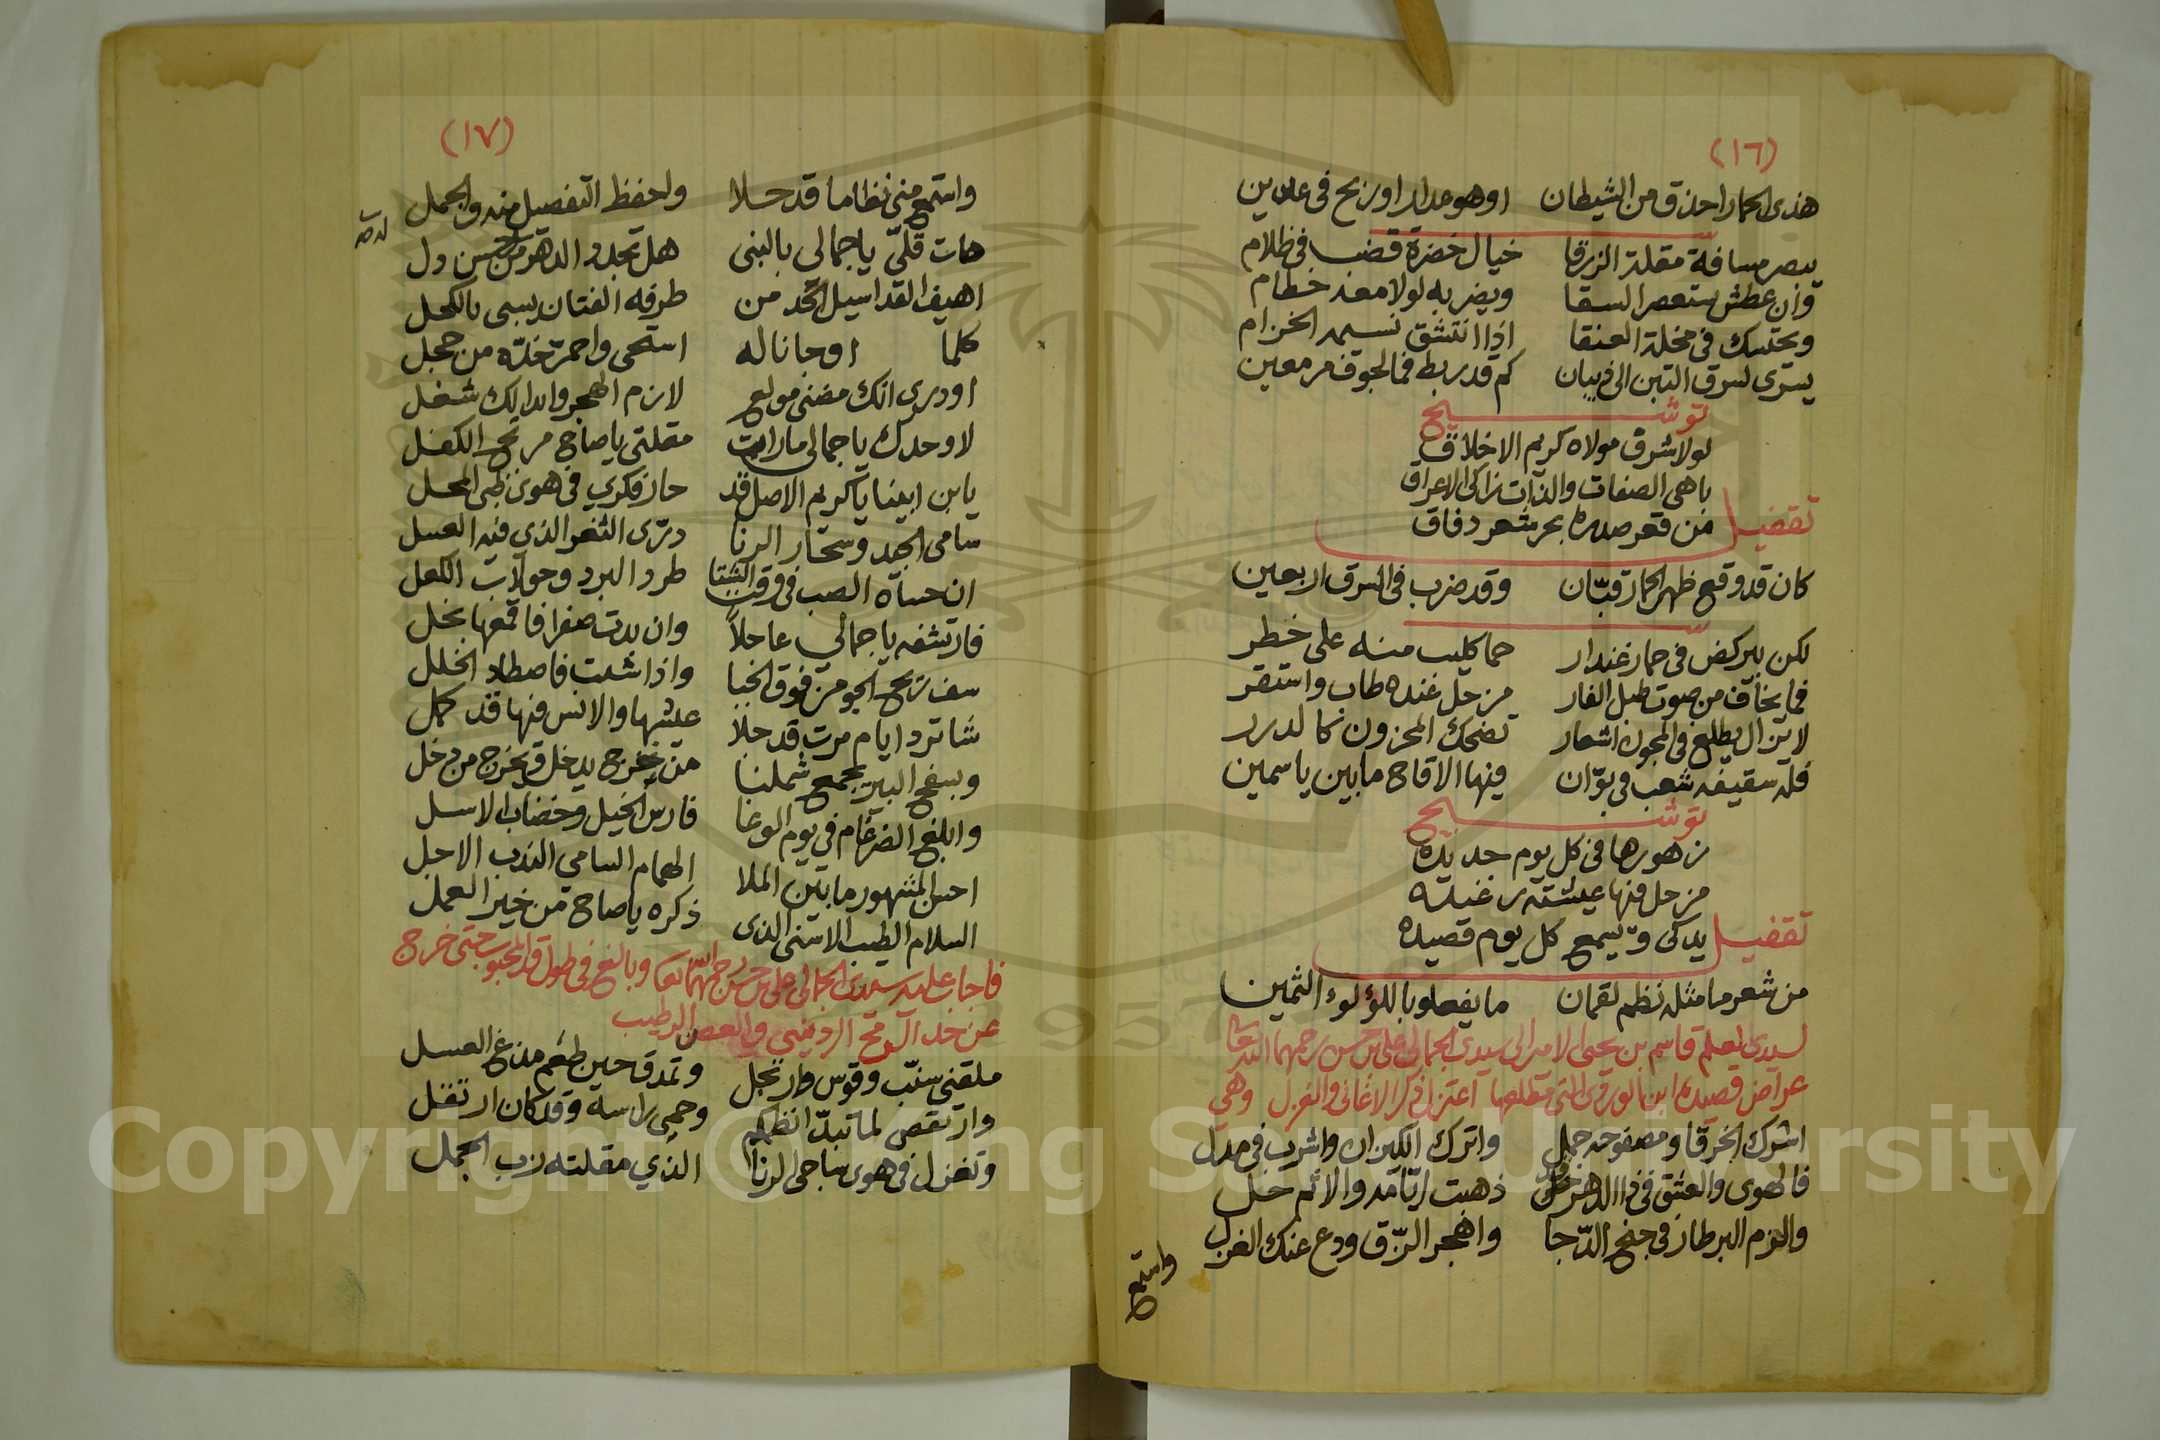 (١٦)
هذى الحمار احذق من الشيطان اوهو مدار اوزنح فى
يبصر مسافة مقلة الزرقا خيال خضرة قضب فى ظلام
وان عطش ستعصر السقا ويضر به لولا معه خطام
ويحتبك فى مخلة العنقا اذا انتشق نسمه الخزام
يسرى لسرق التبن الى ذيبان كم قد ربط فما لجوف مر معين
توشيح
لولا شرف مولاه كريم الاخلاق
باهى الصفات والذات زاكى الاعراق
تقفيل من قعر صدره بحر شعر دفاق
كان قد وقع ظهر الحمار قبّان وقد ضرب فى السرق اربعين
لكن بيركض فى حمار غندار حما كليب منه على خطر
فما يخاف من صوت طبل الفار من حل عنده طاب واستقر
لا يزال يطلع فى المجون اشعار تضحك المحزون كالدرر
فله سقيفه شعب فى بوّان فيها الاقاح ما بين ياسمين
توشيح
زهورها فى كل يوم جديده
من حل فيها عيشته رغيده
تقفيل يدكى ويسمع كل يوم قصيده
من شعر ما مثله نظم لقمان ما يفعلو باللؤلوء الثمين
لسيدى العلم قاسم بن يحيى الامير الى سيدى الجمالى على بن حسن رحمهما الله تعالى
عراض قصيدة ابن الوردى التى مطلعها اعتزل ذكر الاغانى والغزل وهي
اشرك الخرقا ومصفوحه جمل واترك الكيزان واشرب فى مدل
فالهوى والعشق فى ذا الدهر خل ذهبت ايامه والاثم حل
والزم البرطاز فى جنح الدّجا واهجر الزّق ودع عنك الغزل
واستمع
(١٧)
واستمع منى نظاما قد حلا واحفظ التفصيل منه والجمل
هات قلّي يا جمالى بالبنى هل تجدد الدهر من حسن دول
اهيف القد اسيل الخد من طرفه الفتان يسبى بالكحل
كلما اوجاناله استحى واحمر خدّه من خجل
اودرى انك مضنى مولع لازم الهجر وابدا لك شغل
لا وحدك يا جمالى ما رات مقلتى يا صاح مرتج الكفل
يابن ابينا يا كريم الاصل قد حاز فكري فى هوى ظبى المحل
سامى الجد وسحّار الرنا درّى الثغر الذي فيه العسل
ان حساة الصب فى وقت الشتا طرد البرد وحولات الكعل
فارتشفه يا جمالي عاجلاً وان بدت صفرا فاقمعها بخل
سف تريح الجو من فوق الخبا واذا شئت فاصطاد الخلل
شا ترد ايام مرت قد حلا عيشها والانس فيها قد كمل
وبسفح البير يجمع شملنا من خرج يدخل ويخرج من دخل
وابلغ الضرغام فى يوم الوغا فارس الخيل وخضاب الاسل
احسن المشهور ما بين الملا الهمام السامى الندب الاجل
السلام الطيب الاسنى الذى ذكره يا صاح من خير العمل
فاجاب عليه سيدى الجمالى على بن حسن رحمهما الله تعالى وبالغ فى طول قد المحبوب حتى خرج
عن خد الرمح الردينى والغصن الرطيب
ملقنى سنبّ وقوس وارتجل وتمدق حين طعم مذع العسل
وارتقص لما تبدّ انظكم وحمى راسه وقد كان ارتفل
وتغزل فى هوى ساجى الرنا الذي مقلته زب الجمل